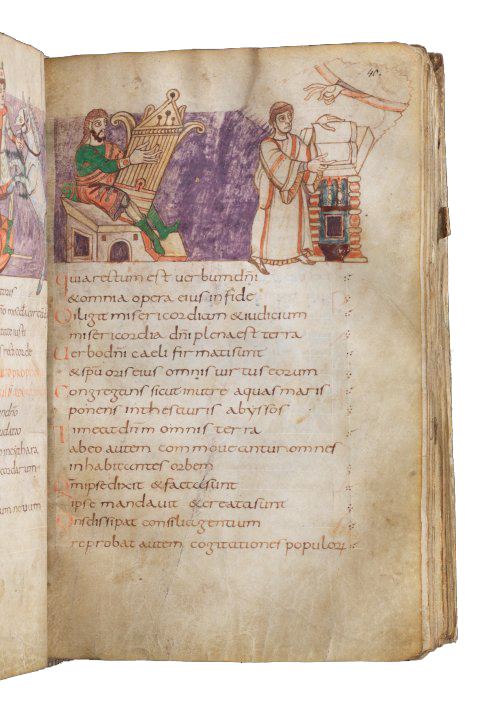 40.
Quia rectum est uerbum dñi
& omnia opera eius in fide
Diligit misericordiam & iudicium
misericordia dñi plena est terra
Uerbo dñi caeli firmati sunt
& spũ oris eius omnis uirtus eorum
Congregans sicut in utre aquas maris
ponens in thesauris abyssos
Timeat dñm omnis terra
ab eo autem commoueantur omnes
inhabitantes orbem
Qm̄ ipse dixit & facta sunt
Ipse mandauit & creata sunt
Dñs dissipat consilia gentium
reprobat autem cogitationes populoꝝ